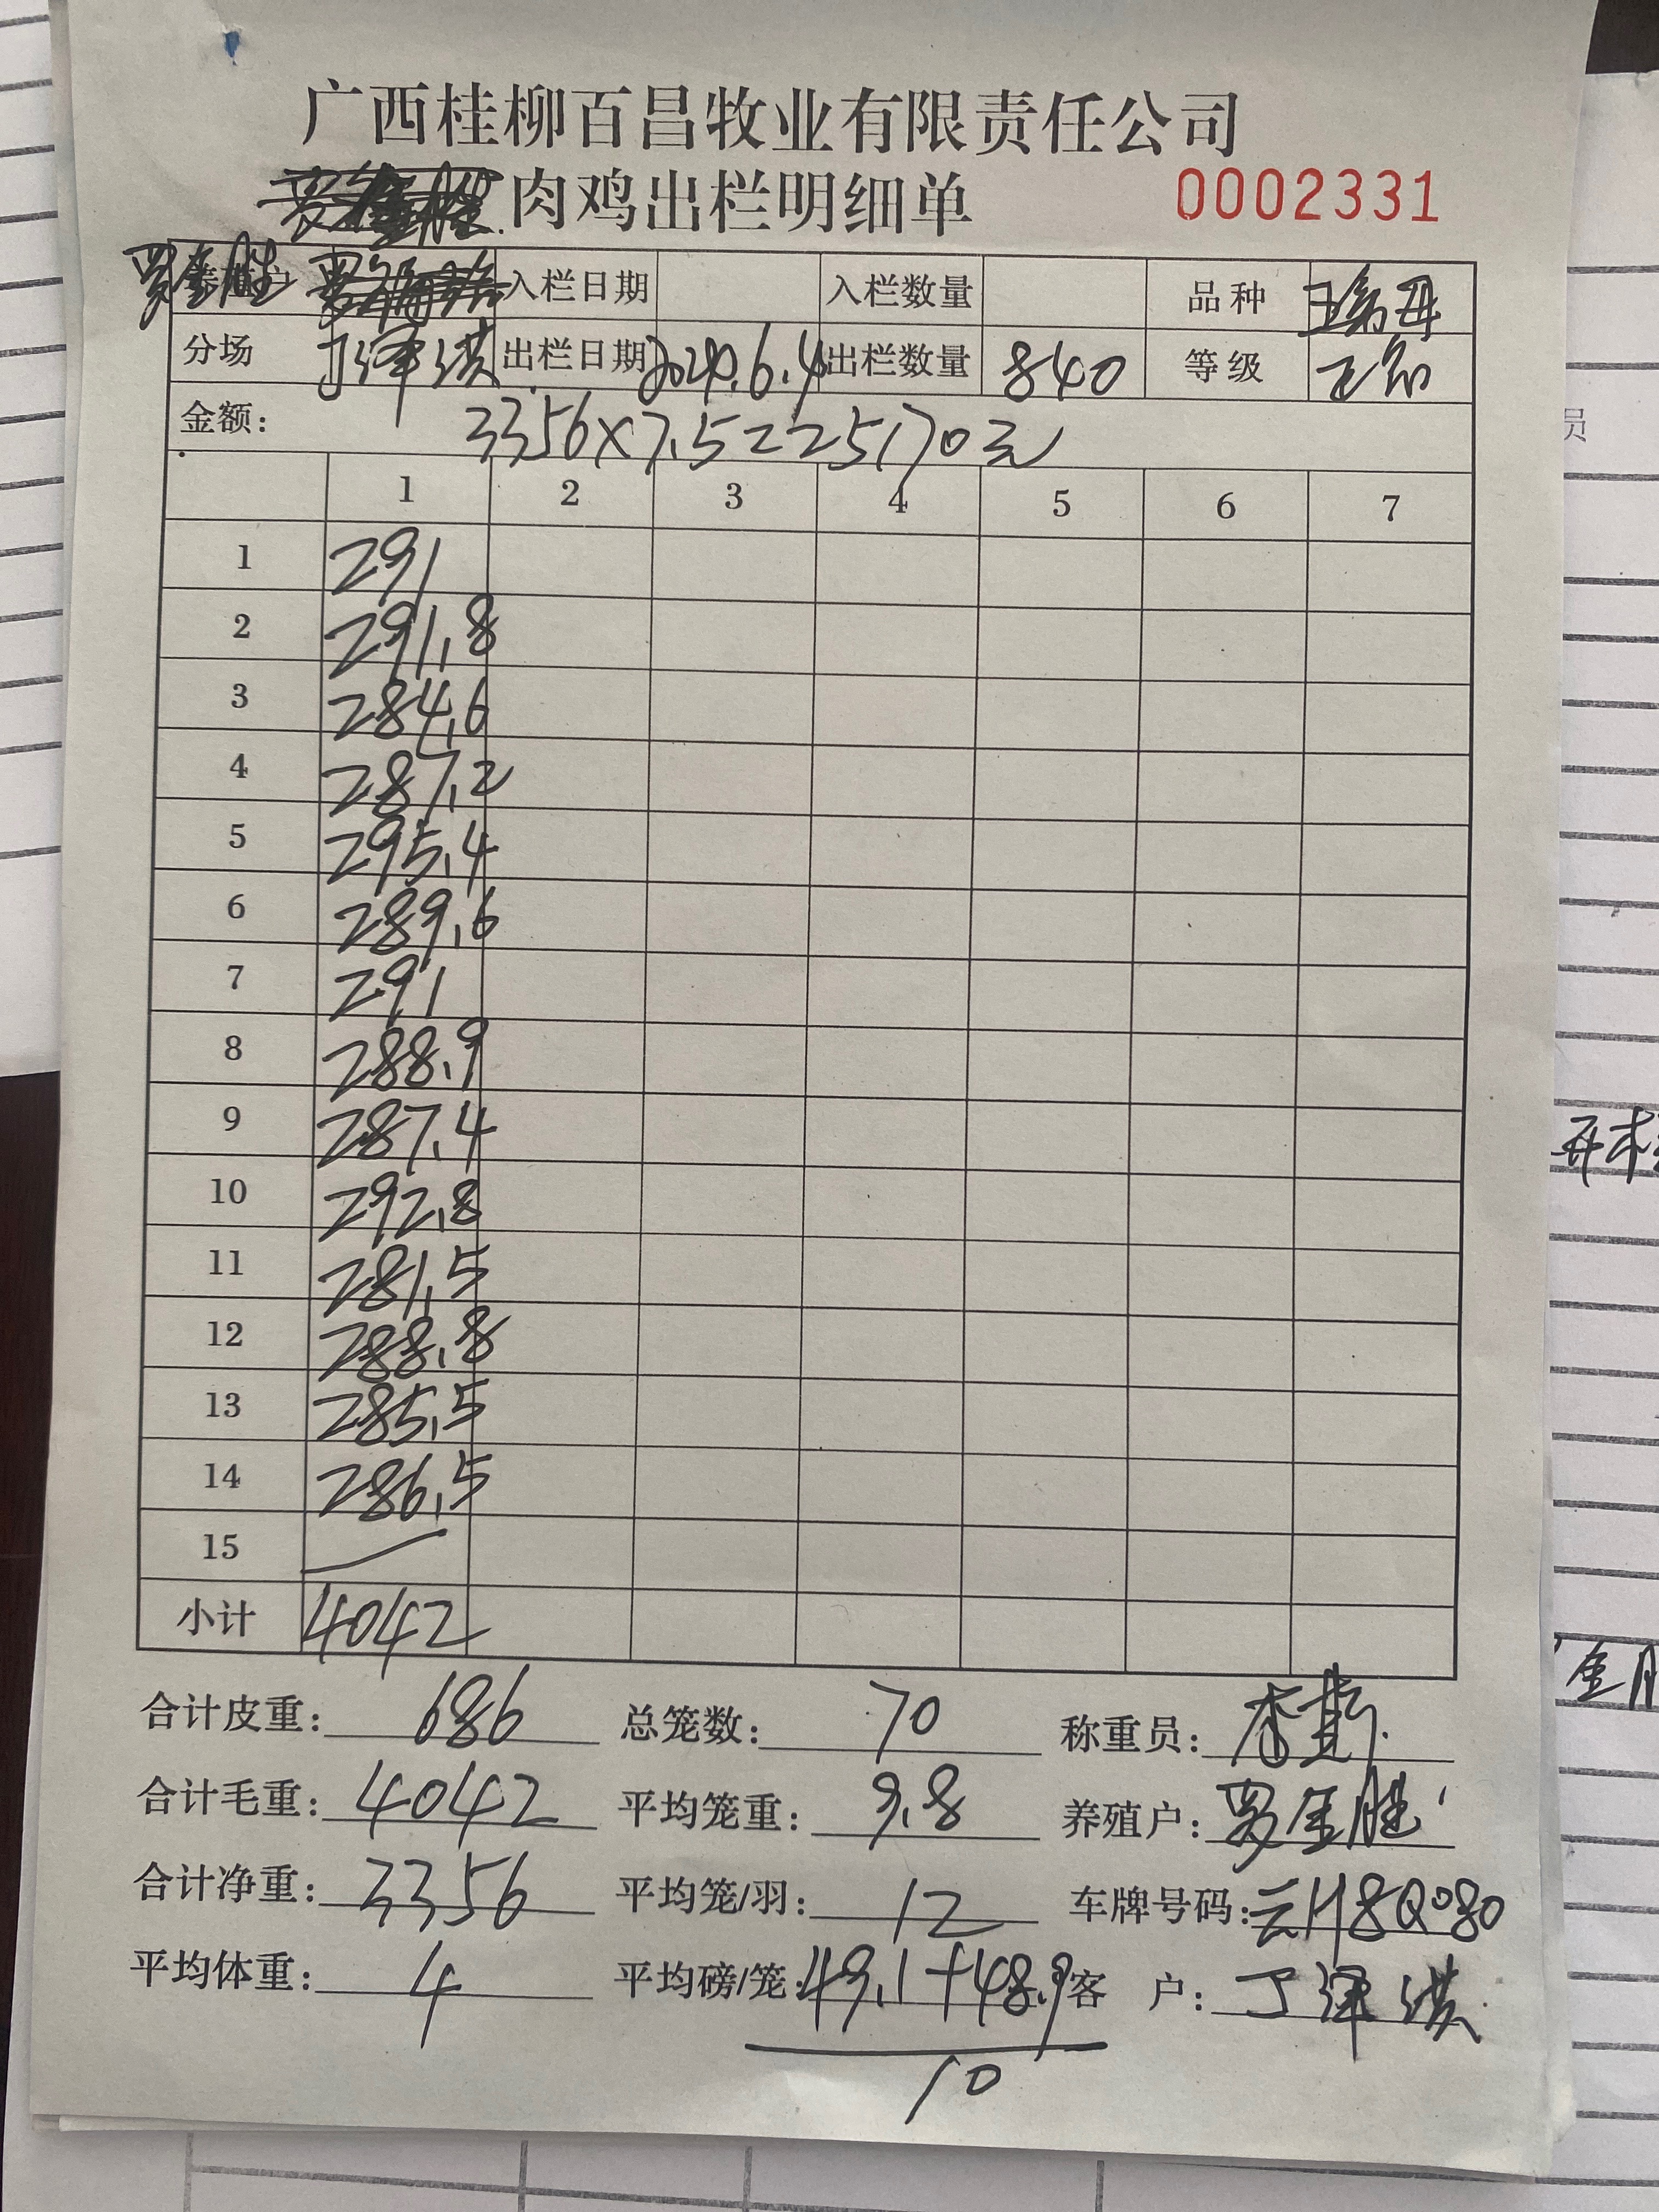 广西桂柳百昌牧业有限责任公司
肉鸡出栏明细单 0002331
罗金胜 入栏日期 入栏数量 品种
分场 丁泽洪 出栏日期 出栏数量 840 等级 正品
金额: 3356×7.5=25170元
1 2 3 4 5 6 7
1 291
2 291.8
3 284.6
4 287.2
5 295.4
6 289.6
7 291
8 288.9
9 287.4
10 292.8
11 281.5
12 288.8
13 285.5
14 286.5
15
小计 4042
合计皮重: 686 总笼数: 70 称重员:
合计毛重: 4042 平均笼重: 9.8 养殖户: 罗金胜
合计净重: 3356 平均笼/羽: 12 车牌号码: 云H8Q080
平均体重: 4 平均磅/笼: 49.1+48.9 客 户: 丁泽洪
10